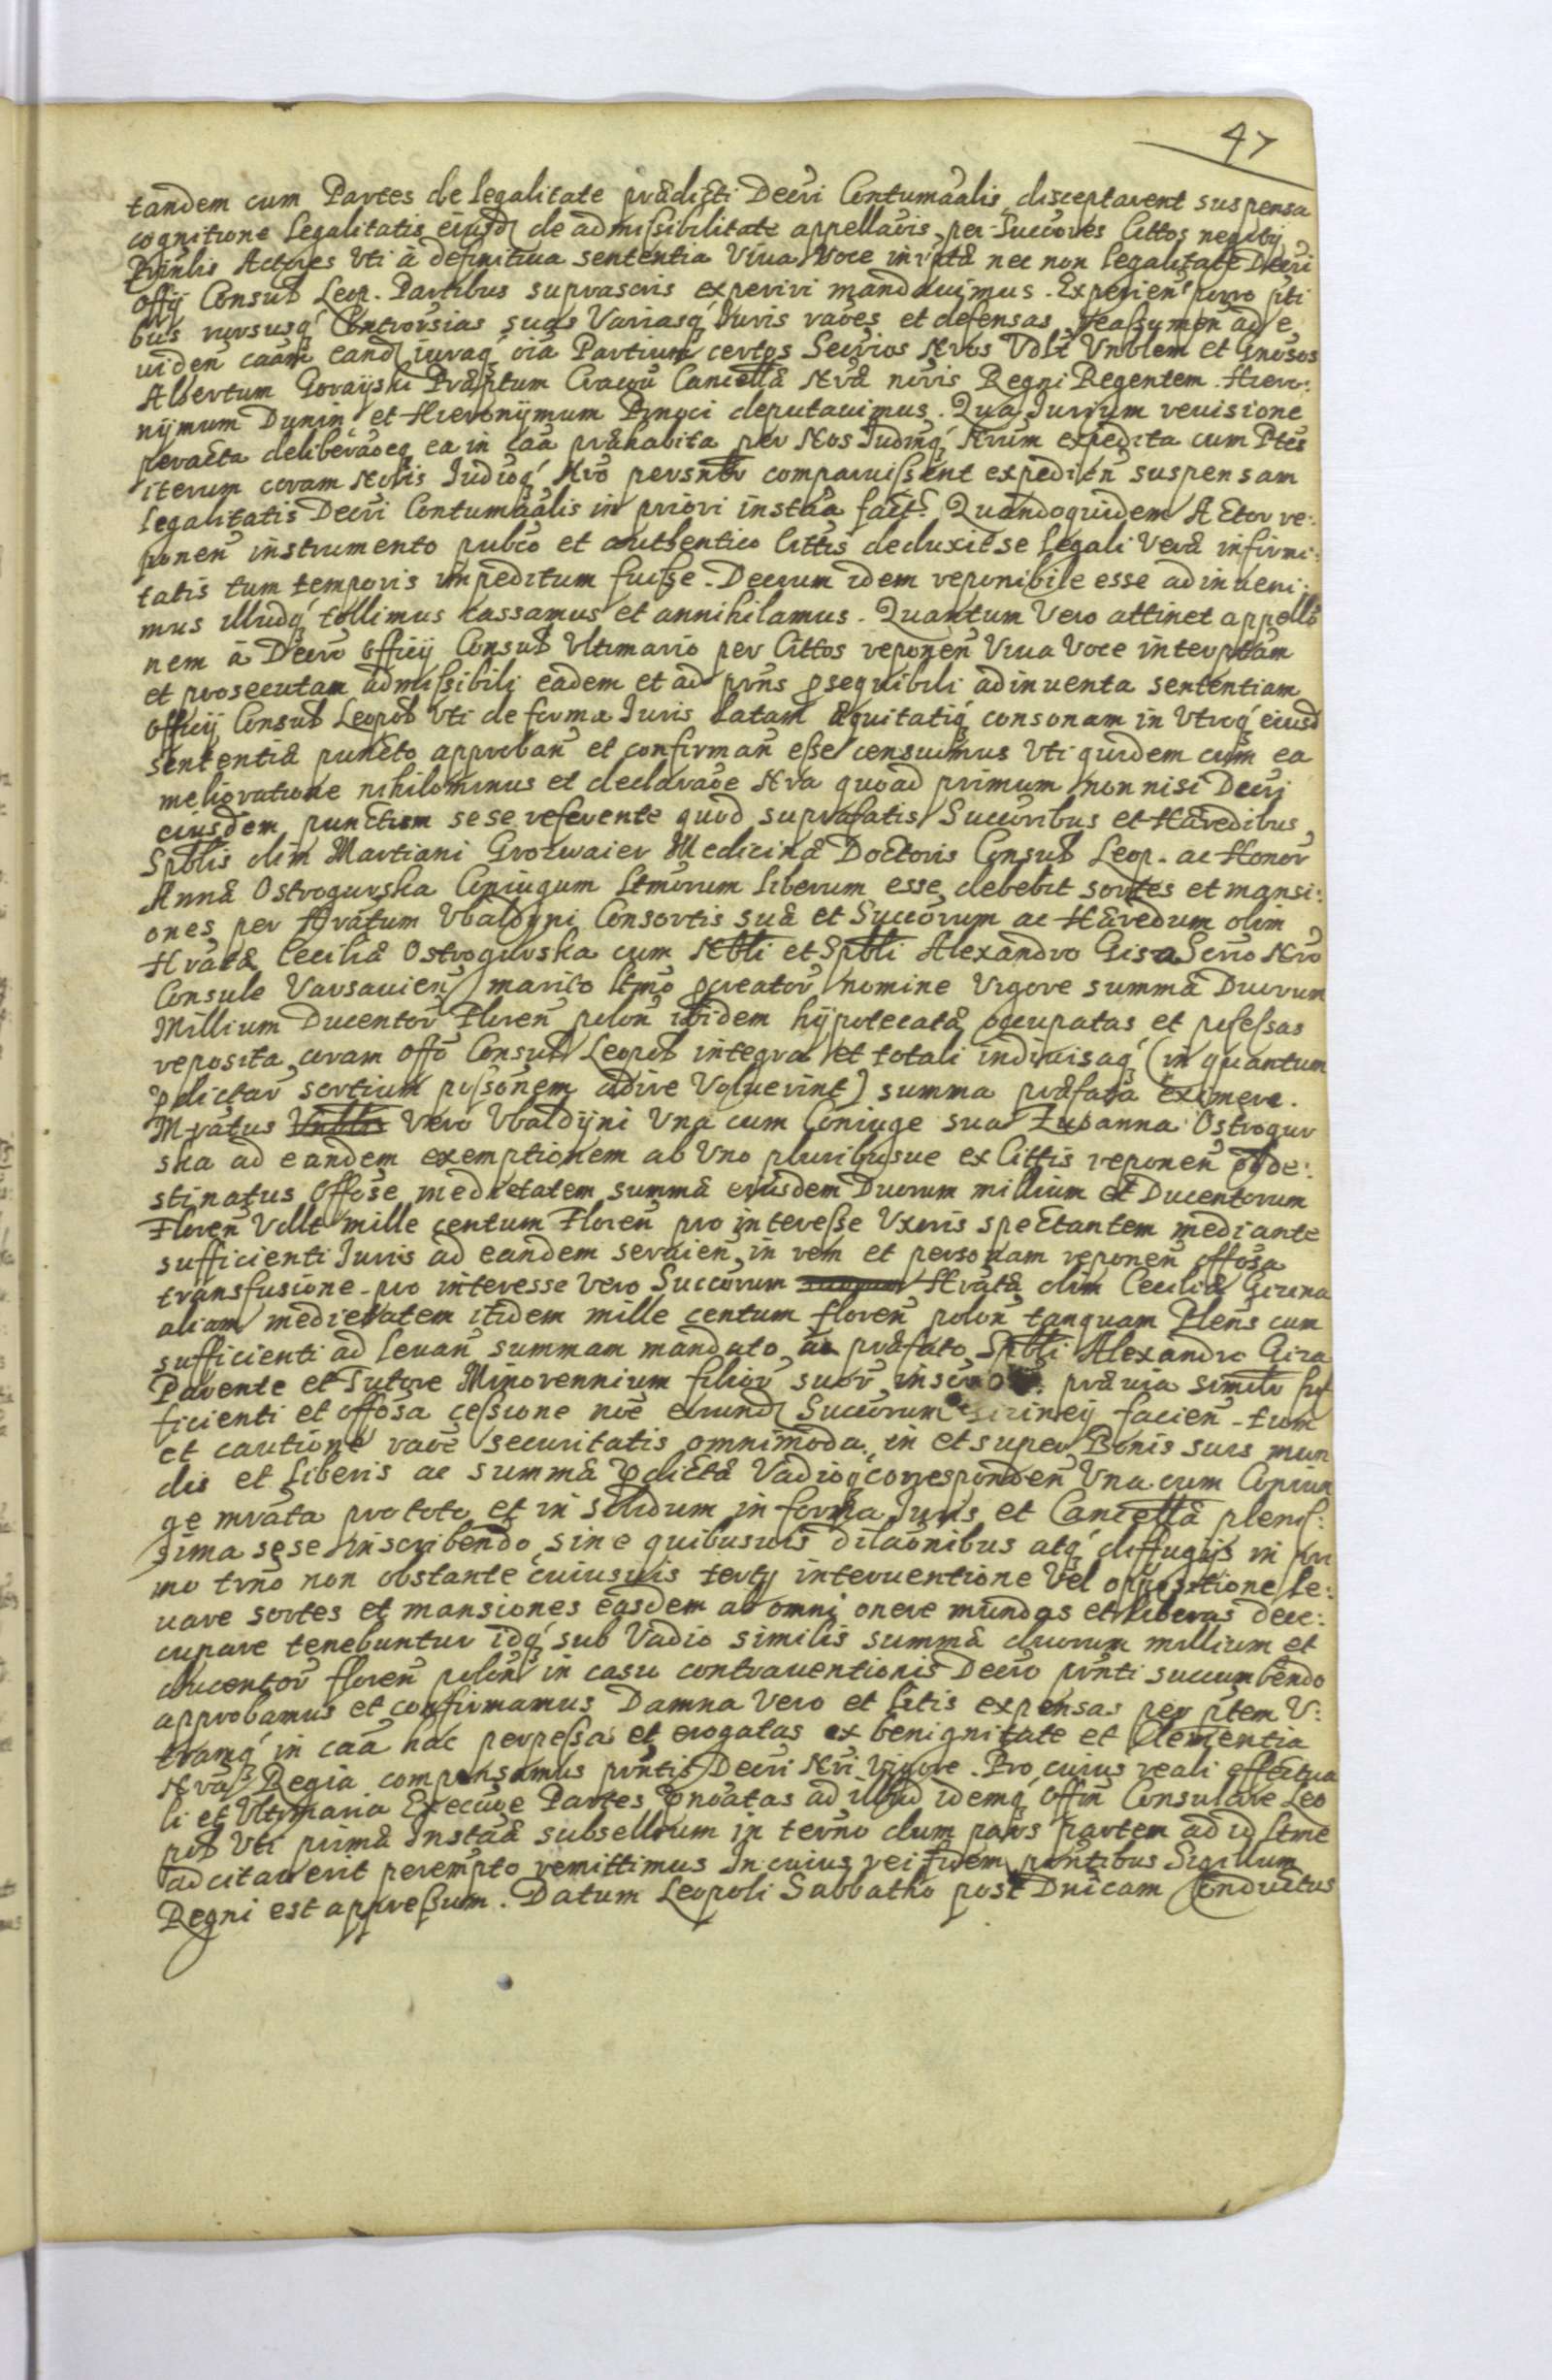 47
tandem cum Partes de legalitate prædicti Decri Contumaalis disceptarent suspensa
cognitione legalitatis eiusd de admissibilitate appellaois per Succores Cittos negotij
Prinlis Actores Vti à definitiua sententia Viua Voce inrptæ nec non legalitate Decri
Offij Consub Leop. Partibus suprascris experiri mandauimus. Experien porro pti
bus rursusq Controrsias suas Variasq Iuris raoes et defensas, reassumen ad e
uiden caam eand iuraq oia Partium certos Secrios Nros Vdlt Vnblem et Gnosos
Albertum Gorayski Præptum Cracou Cancellæ Nræ noris Regni Regentem Hiero:
nijmum Dunin et Hieronijmum Pinoci deputauimus. Qua Iurium reuisione
peracta deliberaoeq ea in caa præhabita per Nos Iudinq Nrum expedita cum Ptes
iterum coram Nobis Iudioq Nro persnlr comparuissent expedien suspensam
legalitatis Decri Contumaalis in priori instaa fact. Quandoquidem Actor re:
ponen instrumento pubco et authentico Cittis deduxit se legali Veræ infirmi:
tatis tum temporis impeditum fuisse. Decrum idem reponibile esse adinueni:
mus illudq tollimus cassamus et annihilamus. Quantum Vero attinet appello
nem à Decro Officij Consub Vltimario per Cittos reponen Viua Voce interptam
et prosecutam admissibili eadem et ad prns psequibili adinuenta sententiam
Officij Consub Leopob Vti de forma Iuris latam Æquitatiq consonam in Vtroq eiusd
sententiæ puncto approban et confirman esse censuimus Vti quidem cum ea
melioratione nihilominus et declaraoe Nra quoad primum non nisi Decri
eiusdem punctum sese referente quod suprafatis Succoribus et Hæredibus
Spblis olim Martiani Grozwaier Medicinæ Doctoris Consub Leop. ac Honor
Annæ Ostrogurska Coniugum ltmorum liberum esse debebit sortes et mansi:
ones per Hratum Vbaldyni Consortis suæ et Succorum ac Hæredum olim
Hratæ Ceciliæ Ostrogurska cum Nbli et Spbli Alexandro Gisa Secrio Nro
Consule Varsauien marito ltmo pcreator nomine Vigore summæ Duorum
Millium Ducentor Floren polon ibidem hijpotecatæ occupatas et possessas
reposita coram Offo Consub Leopob integra et totali indiuisaq (in quantum
pdictar sortium possonem adire Voluerint) summa præfata eximere.
Mratus Vero Vbaldijni Vna cum Coniuge sua Zusanna Ostrogur
ska ad eandem exemptionem ab Vno pluribusue ex Cittis reponen
stinatus Offose medietatem summæ eiusdem Duorum millium et Ducentorum
Floren Vdlt mille centum Floren pro interesse Vxoris spectantem mediante
sufficienti Iuris ad eandem seruien in rem et personam reponen offosa
transfusione pro interesse Vero Succorum Hratæ olim Ceciliæ Gizina
aliam medietatem itidem mille centum floren polon tanquam Plens cum
sufficienti ad leuan summam mandato præfato Spbli Alexandro Giza
Parente et Tutore Minorennium filior suor præuia simili suf
ficienti et offosa cessione noe eorund Succorum facien tum
et cautione raoe securitatis omnimoda in et super Bonis suis mun
dis et liberis ac summæ pdictæ Vadioq corresponden Vna cum Coniu
ge mrata pro toto et in solidum in forma Iuris et Cancellæ plenis:
sima sese inscribendo sine quibusuis dilaonibus atq diffugijs in pri
mo trno non obstante cuiusuis tertij interuentione Vel oppositione le:
uare sortes et mansiones easdem ab omni onere mundas et liberas deoc:
cupare tenebuntur idq sub Vadio similis summæ duorum millium et
ducentor floren polon in casu contrauentionis Decro prnti succumbendo
approbamus et confirmamus Damna Vero et litis expensas per ptem V:
tramq in caa hac perpessas et erogatas ex benignitate et Clementia
Nra Regia compensamus prntis Decri Nri Vigore. Pro cuius reali effectua
li et Vltimaria Execuoe Partes pnoatas ad illud idemq Offin Consulare Leo
pob Vti primæ Instaæ subsellium in terno dum pars partem ad id ltme
adcitauerit perempto remittimus In cuius rei fidem prntibus Sigillum
Regni est appressum. Datum Leopoli Sabbatho post Dnicam Conductus